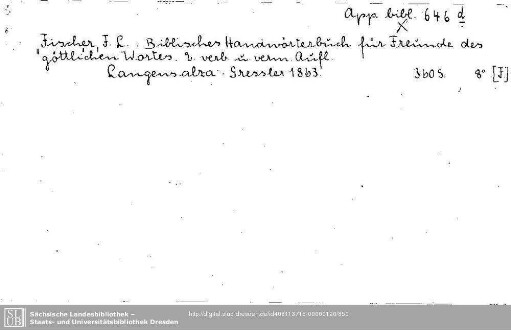 App. bibl. 646 d
Fischer, F. L.: Biblisches Handwörterbuch für Freunde des
göttlichen Wortes. 2. verb. u. verm. Aufl.
Langensalza: Gressler 1863. 360 S. 8° [F]
Sächsische Landesbibliothek –
Staats- und Universitätsbibliothek Dresden